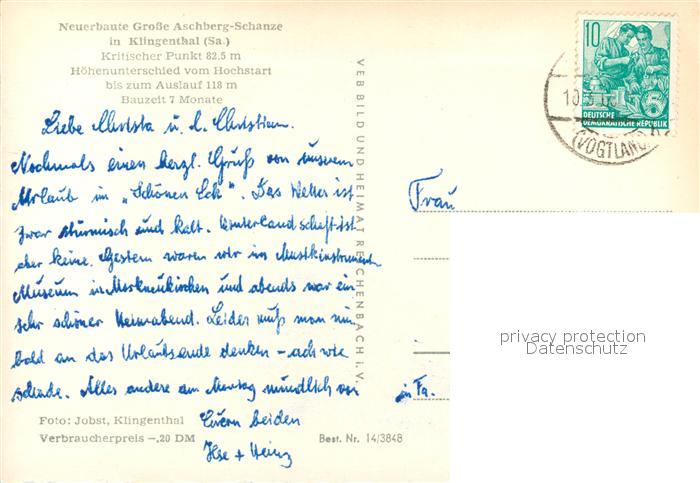 Neuerbaute Große Aschberg-Schanze
in Klingenthal (Sa.)
Kritischer Punkt 82,5 m
Höhenunterschied vom Hochstart
bis zum Auslauf 118 m
Bauzeit 7 Monate
Liebe Christa u. l. Christian.
Nochmals einen herzl. Gruß von unserem
Urlaub im „Schönen Eck". Das Wetter ist
zwar stürmisch und kalt. Winterlandschaft ist
aber keine. Gestern waren wir im Musikinstrument.
Museum in Markneukirchen und abends war ein
sehr schöner Heimabend. Leider muß man nun
bald an das Urlaubsende denken – ach wie
schade. Alles andere am Montag mündlich von
Euern beiden
Ilse + Heinz
Foto: Jobst, Klingenthal
Verbraucherpreis –,20 DM
Best. Nr. 14/3848
VEB BILD UND HEIMAT REICHENBACH i. V.
10
DEUTSCHE
DEMOKRATISCHE REPUBLIK
(VOGTLAND)
Frau
in Fa.
privacy protection
Datenschutz